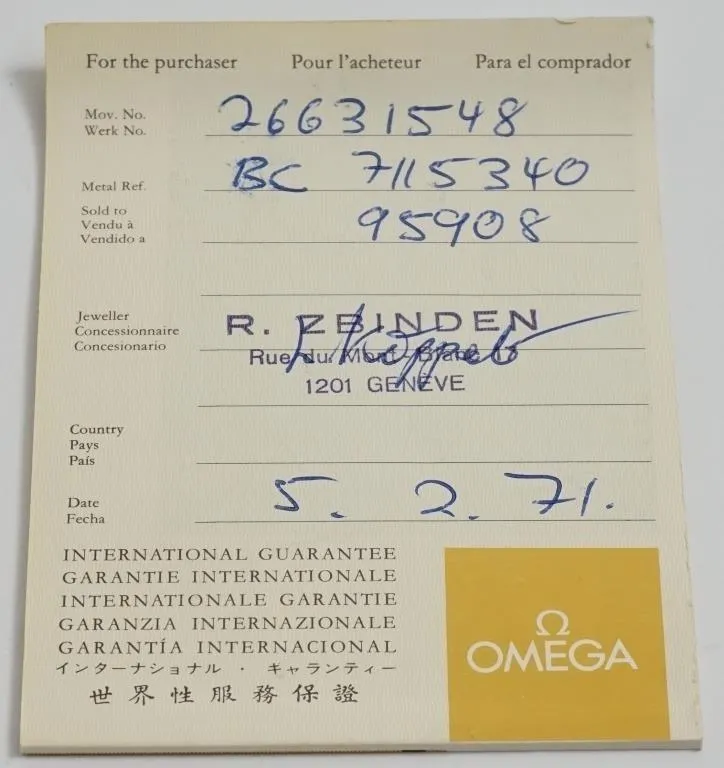 For the purchaser Pour l'acheteur Para el comprador
Mov. No.
Werk No.
26631548
Metal Ref.
BC 7115340
Sold to
Vendu à
Vendido a
95908
Jeweller
Concessionnaire
Concesionario
R. ZBINDEN
Rue du Mont-Blanc
1201 GENÈVE
Country
Pays
País
Date
Fecha
5. 2. 71.
INTERNATIONAL GUARANTEE
GARANTIE INTERNATIONALE
INTERNATIONALE GARANTIE
GARANZIA INTERNAZIONALE
GARANTÍA INTERNACIONAL
インターナショナル・キャランティー
世界性服務保證
Ω
OMEGA